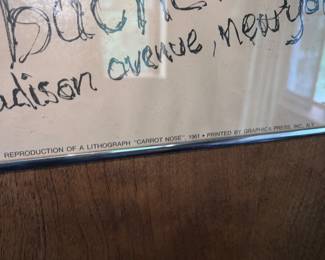 bache
adison avenue, newyo
REPRODUCTION OF A LITHOGRAPH "CARROT NOSE", 1961 • PRINTED BY GRAPHICS PRESS, INC. N.Y.